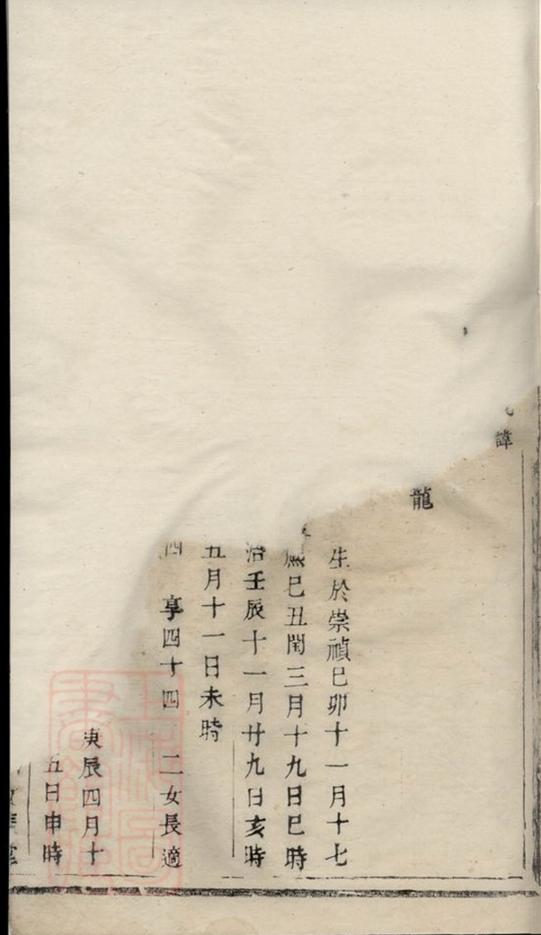 諱
龍
生於崇禎己卯十一月十七
熈己丑閏三月十九日巳時
治壬辰十一月廿九日亥時
五月十一日未時
四 享四十四 二女長適
庚辰四月十
五日申時